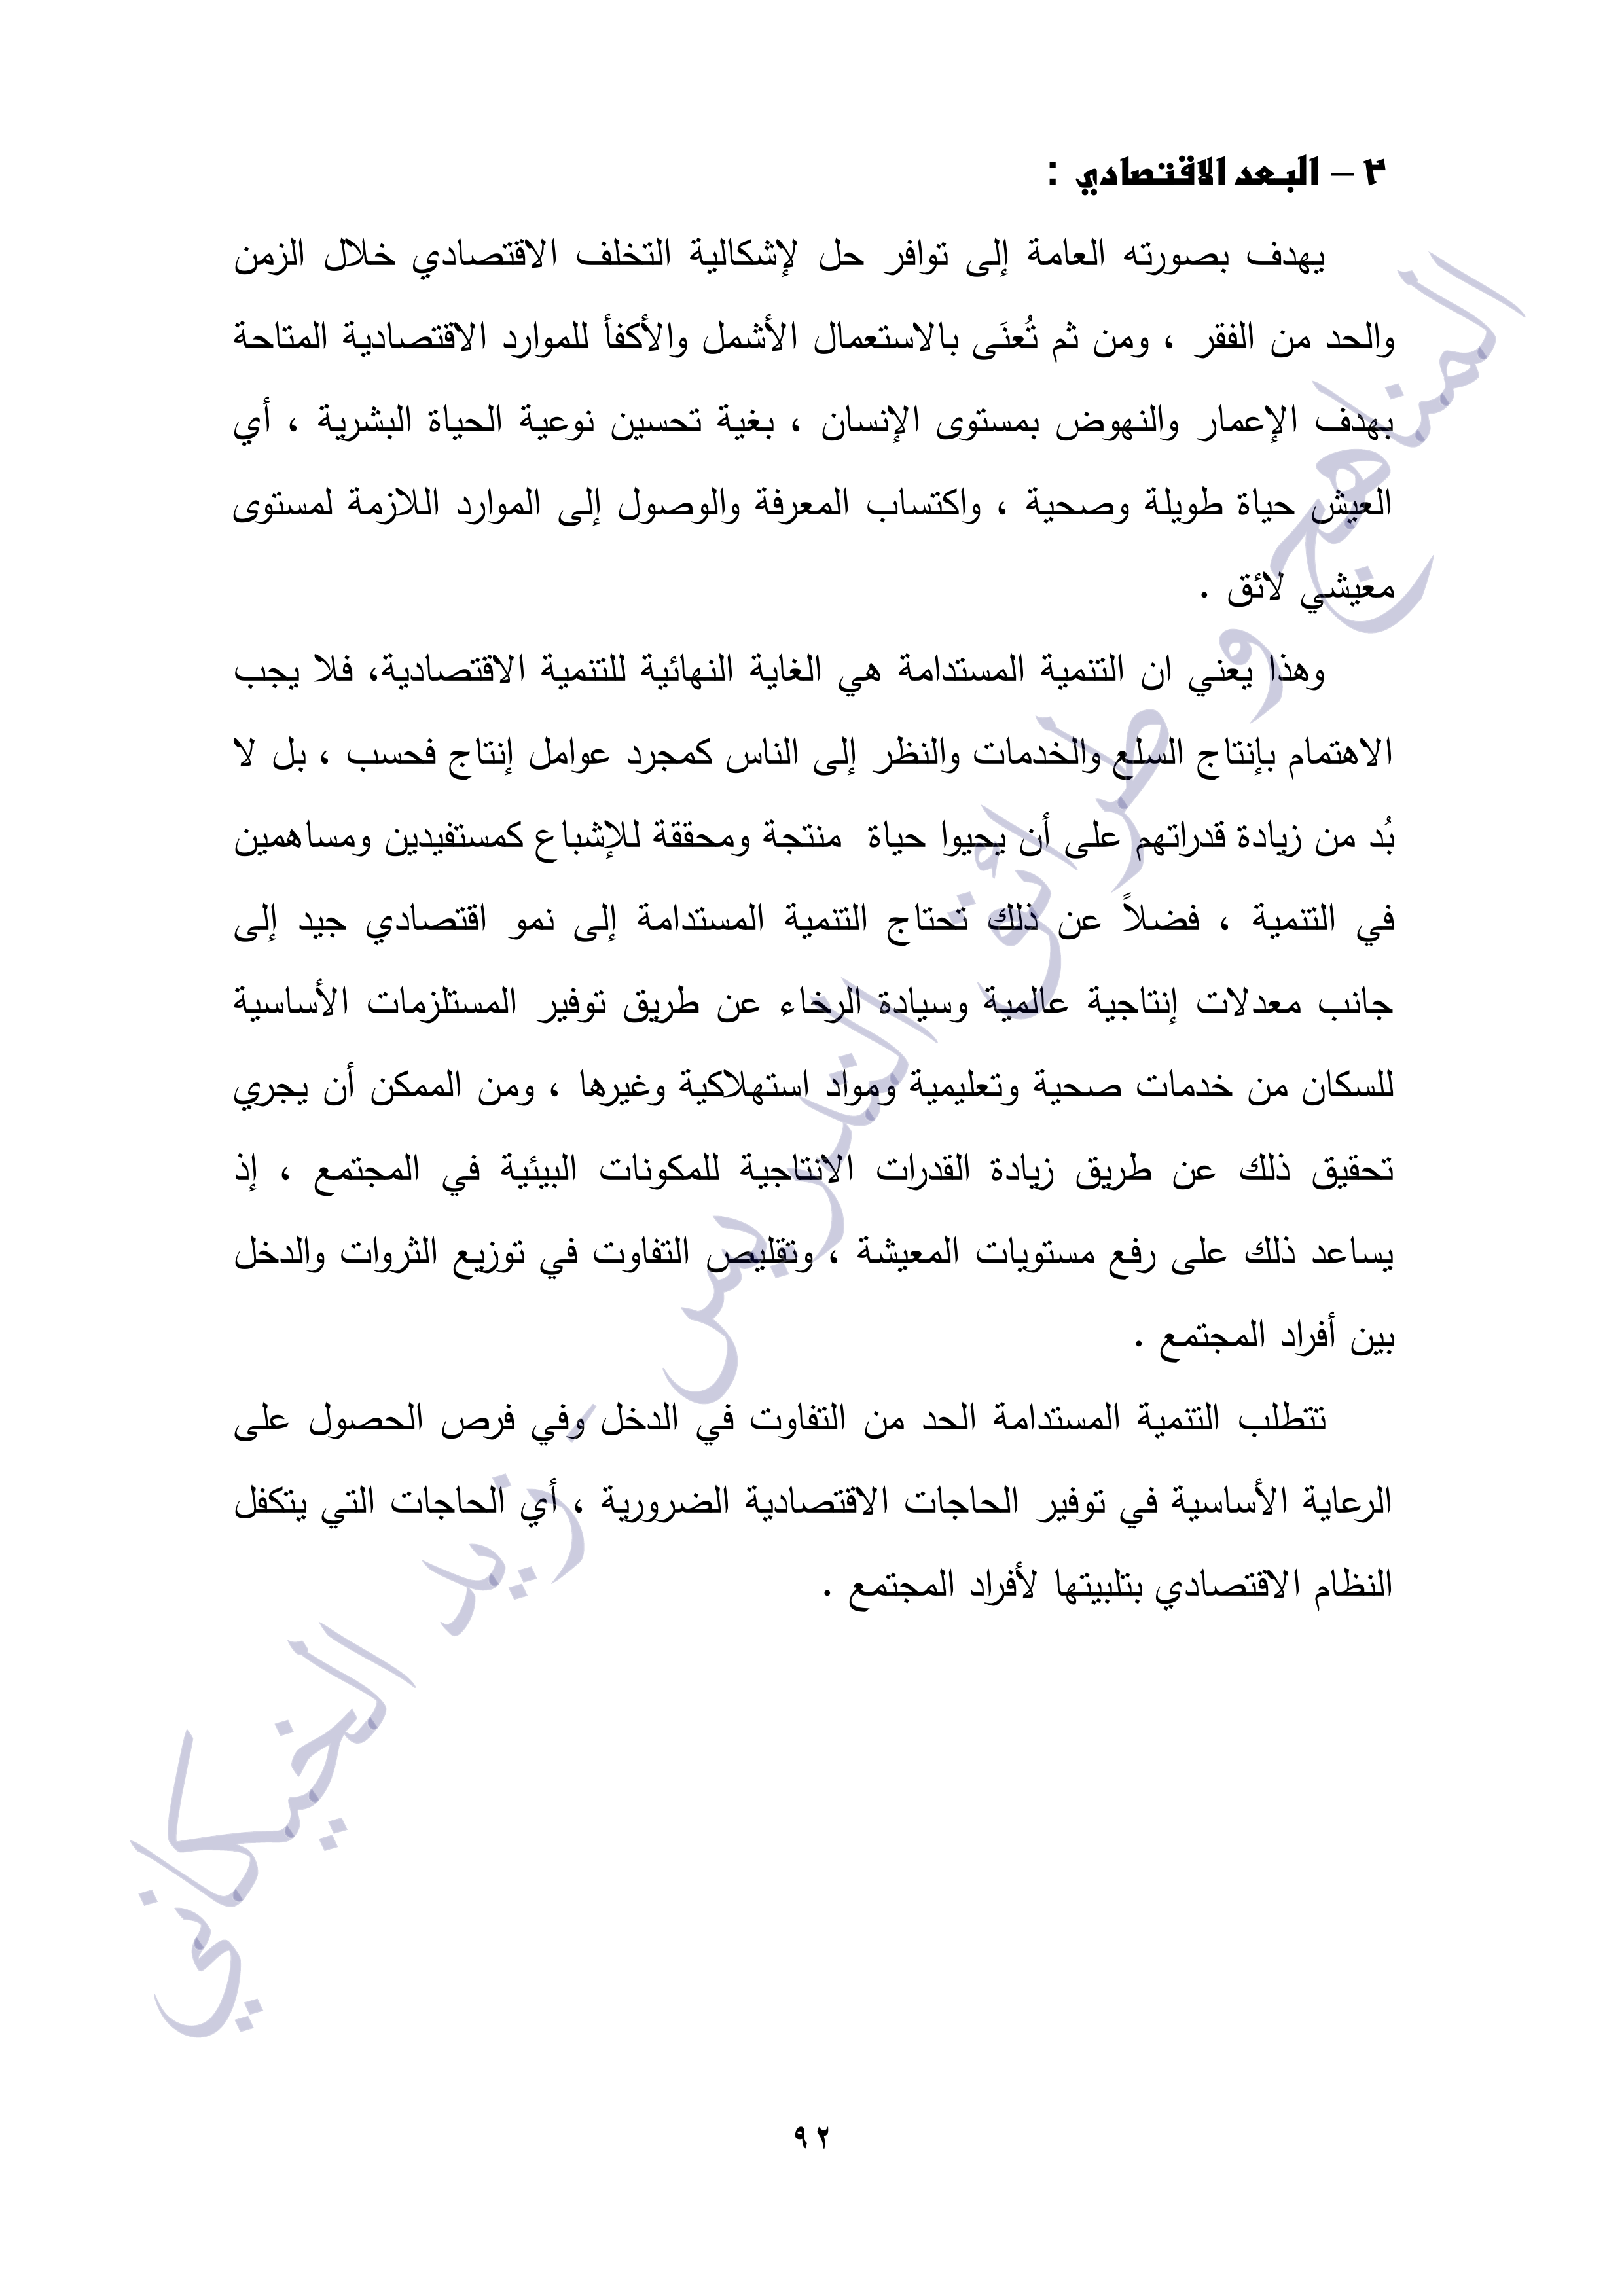 ٣ – البعد الاقتصادي :
يهدف بصورته العامة إلى توافر حل لإشكالية التخلف الاقتصادي خلال الزمن
والحد من الفقر ، ومن ثم تُعنَى بالاستعمال الأشمل والأكفأ للموارد الاقتصادية المتاحة
بهدف الإعمار والنهوض بمستوى الإنسان ، بغية تحسين نوعية الحياة البشرية ، أي
العيش حياة طويلة وصحية ، واكتساب المعرفة والوصول إلى الموارد اللازمة لمستوى
معيشي لائق .
وهذا يعني ان التنمية المستدامة هي الغاية النهائية للتنمية الاقتصادية، فلا يجب
الاهتمام بإنتاج السلع والخدمات والنظر إلى الناس كمجرد عوامل إنتاج فحسب ، بل لا
بُد من زيادة قدراتهم على أن يحيوا حياة منتجة ومحققة للإشباع كمستفيدين ومساهمين
في التنمية ، فضلاً عن ذلك تحتاج التنمية المستدامة إلى نمو اقتصادي جيد إلى
جانب معدلات إنتاجية عالمية وسيادة الرخاء عن طريق توفير المستلزمات الأساسية
للسكان من خدمات صحية وتعليمية ومواد استهلاكية وغيرها ، ومن الممكن أن يجري
تحقيق ذلك عن طريق زيادة القدرات الانتاجية للمكونات البيئية في المجتمع ، إذ
يساعد ذلك على رفع مستويات المعيشة ، وتقليص التفاوت في توزيع الثروات والدخل
بين أفراد المجتمع .
تتطلب التنمية المستدامة الحد من التفاوت في الدخل وفي فرص الحصول على
الرعاية الأساسية في توفير الحاجات الاقتصادية الضرورية ، أي الحاجات التي يتكفل
النظام الاقتصادي بتلبيتها لأفراد المجتمع .
المناهج و طرائق التدريس - زيد الخيكاني
٩٢